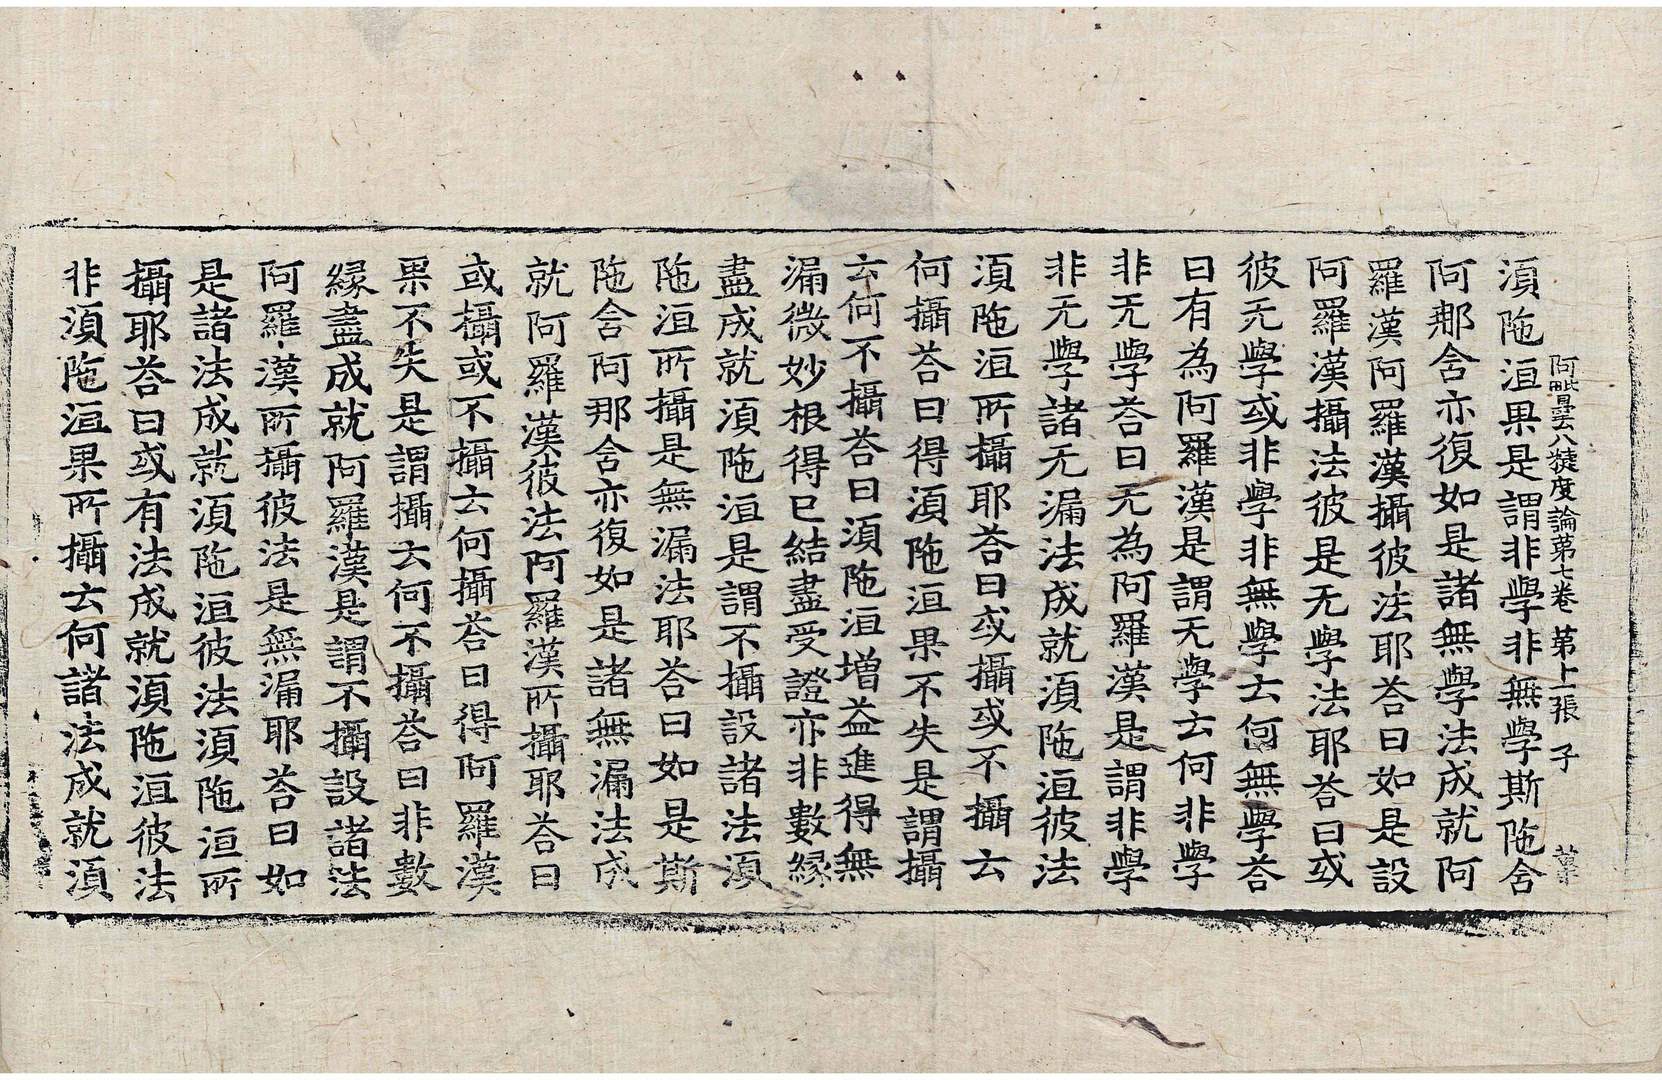 阿毗曇八揵度論苐七卷 苐十一張 子
須陁洹果是謂非學非無學斯陁含
阿那含亦復如是諸無學法成就阿
羅漢阿羅漢攝彼法耶荅曰如是設
阿羅漢攝法彼是无學法耶荅曰或
彼无學或非學非無學云何無學荅
曰有為阿羅漢是謂无學云何非學
非无學荅曰无為阿羅漢是謂非學
非无學諸无漏法成就須陁洹彼法
須陁洹所攝耶荅曰或攝或不攝云
何攝荅曰得須陁洹果不失是謂攝
云何不攝荅曰須陁洹增益進得無
漏微妙根得已結盡受證亦非數緣
盡成就須陁洹是謂不攝設諸法須
陁洹所攝是無漏法耶荅曰如是斯
陁含阿那含亦復如是諸無漏法成
就阿羅漢彼法阿羅漢所攝耶荅曰
或攝或不攝云何攝荅曰得阿羅漢
果不失是謂攝云何不攝荅曰非數
緣盡成就阿羅漢是謂不攝設諸法
阿羅漢所攝彼法是無漏耶荅曰如
是諸法成就須陁洹彼法須陁洹所
攝耶荅曰或有法成就須陁洹彼法
非須陁洹果所攝云何諸法成就須